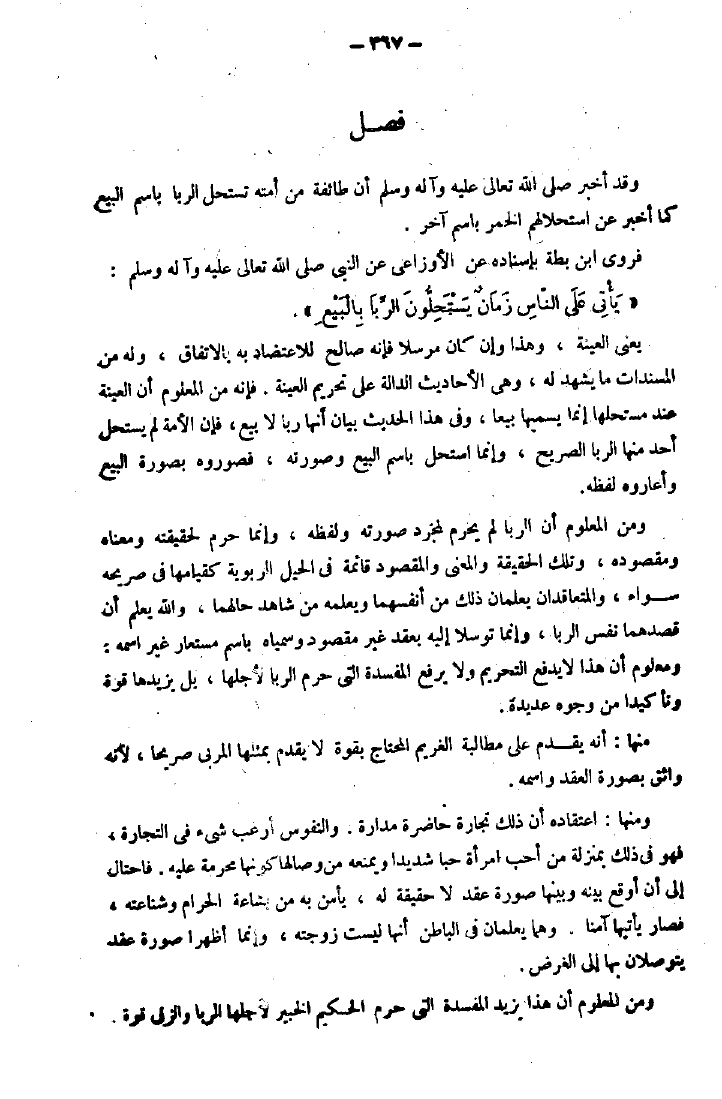 — ٣٦٧ —
فصـل
وقد أخبر صلى الله تعالى عليه وآله وسلم أن طائفة من أمته تستحل الربا باسم البيع
كما أخبر عن استحلالهم الخمر باسم آخر .
فروى ابن بطة بإسناده عن الأوزاعى عن النبي صلى الله تعالى عليه وآله وسلم :
« يَأْتِى عَلَى النَّاسِ زَمَانٌ يَسْتَحِلُّونَ الرِّبَا بِالْبَيْعِ » .
يعنى العينة ، وهذا وإن كان مرسلا فإنه صالح للاعتضاد به بالاتفاق ، وله من
المسندات ما يشهد له ، وهى الأحاديث الدالة على تحريم العينة . فإنه من المعلوم أن العينة
عند مستحلها إنما يسميها بيعا ، وفى هذا الحديث بيان أنها ربا لا بيع ، فإن الأمة لم يستحل
أحد منها الربا الصريح ، وإنما استحل باسم البيع وصورته ، فصوروه بصورة البيع
وأعاروه لفظه.
ومن المعلوم أن الربا لم يحرم لمجرد صورته ولفظه ، وإنما حرم لحقيقته ومعناه
ومقصوده ، وتلك الحقيقة والمعنى والمقصود قائمة فى الحيل الربوية كقيامها فى صريحه
سـواء ، والمتعاقدان يعلمان ذلك من أنفسهما ويعلمه من شاهد حالهما ، والله يعلم أن
قصدهما نفس الربا ، وإنما توسلا إليه بعقد غير مقصود وسمياه باسم مستعار غير اسمه :
ومعلوم أن هذا لايدفع التحريم ولا يرفع المفسدة التى حرم الربا لأجلها ، بل يزيدها قوة
وتأكيدا من وجوه عديدة .
منها : أنه يقـدم على مطالبة الغريم المحتاج بقوة لا يقدم بمثلها المربى صريحا ، لأنه
واثق بصورة العقد واسمه .
ومنها : اعتقاده أن ذلك تجارة حاضرة مدارة . والنفوس أرغب شىء فى التجارة ،
فهو فى ذلك بمنزلة من أحب امرأة حبا شديدا ويمنعه من وصالها كونها محرمة عليه . فاحتال
إلى أن أوقع بينه وبينها صورة عقد لا حقيقة له ، يأمن به من بشاعة الحرام وشناعته ،
فصار يأتيها آمنا . وهما يعلمان فى الباطن أنها ليست زوجته ، وإنما أظهرا صورة عقد
يتوصلان بها إلى الغرض .
ومن المعلوم أن هذا يزيد المفسدة التى حرم الحـكيم الخبير لأجلها الربا والزنى قوة .